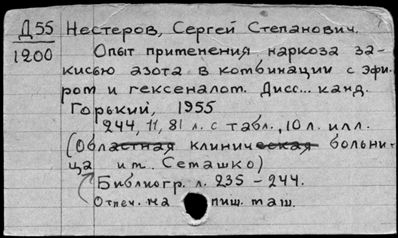 Д55 Нестеров, Сергей Степанович.
1200 Опыт применения наркоза за-
кисью азота в комбинации с эфи-
ром и гексеналом. Дисс... канд.
Горький, 1955
244, 11, 81 л. с табл., 10 л. илл.
(Областная клиническая больни-
ца им. Семашко)
Библиогр. л. 235-244.
Отпеч. на пиш. маш.